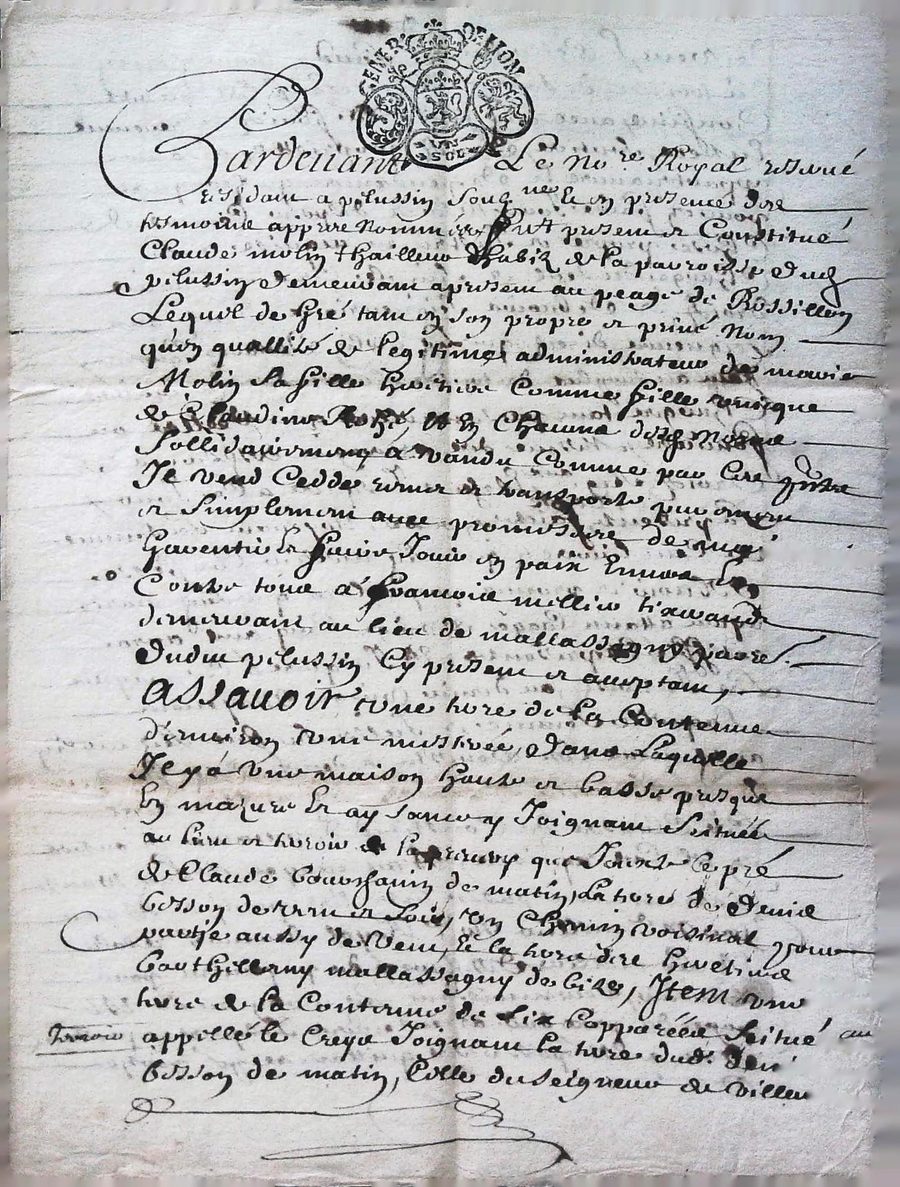 GENER DE LYON
UN SOL
Pardevant Le No.re Royal ressrué
Residant a pelussin souz.ne & en presence des
tesmoins appres nommés fut present et Constitué
Claude molin thailleur dhabiz de la parroisse dud
pelussin demeurant apresent au peage de Rossillon
Lequel de gré tant en son propre et privé Nom
quen quallité de legitime administrateur de marie
Molin sa fille heritiere comme fille unicque
de Claudine
sollidairement a vandu comme par ces
Il vend Cedde remet et transporte purement
et simplement avec promesse de
Garentir & faire Jouir en paix Envers &
Contre tous a francois mellier tixerand
demeurant au lieu de mallassagny parre.
dudit pelussin cy present et acceptant,
Assavoir une terre de la Contenue
d'environ une mestreé, dans laquelle
Il y a une maison haute et basse presque
En mazure & ay sances y Joignant scituée
au lieu et terroir de que Jouxte le pré
de Claude de matin, la terre de denis
besson de vent et soir, un Chemin voisinal pour
partie aussy de vent, & la terre des heretiers
barthellemy mallassagny de bize, Item une
terre de la Contenue de six Coppées scitué au
terroir appellé le Creya Joignant la terre dud. denis
besson de matin, Celle du seigneur de villen